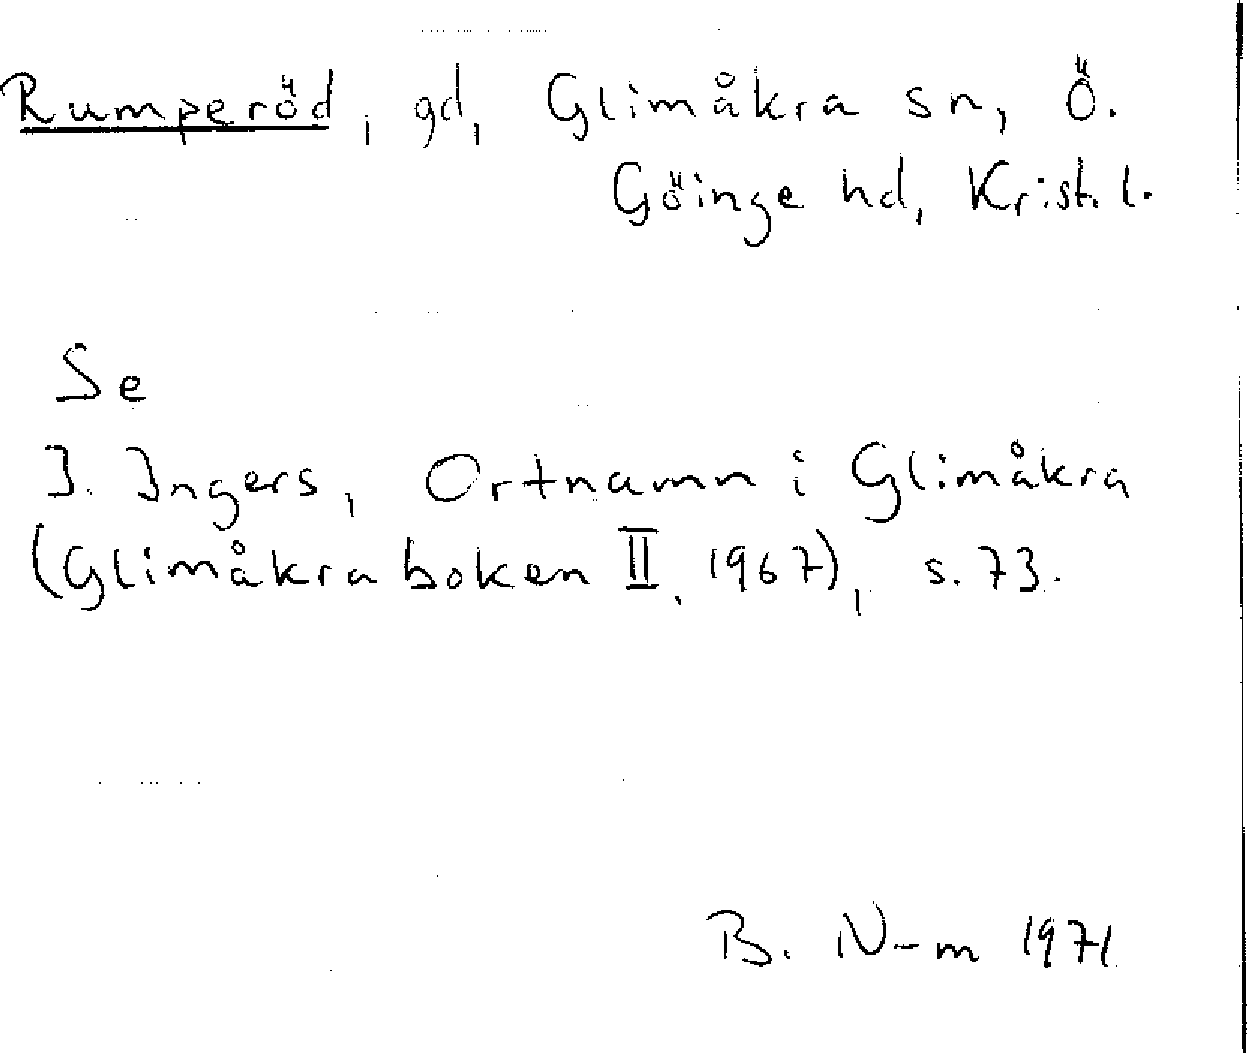 Rumperöd, gd, Glimåkra sn, Ö.
Göinge hd, Krist. l.
Se
I. Ingers, Ortnamn i Glimåkra
(Glimåkraboken II, 1967), s. 73.
B. N-m 1971